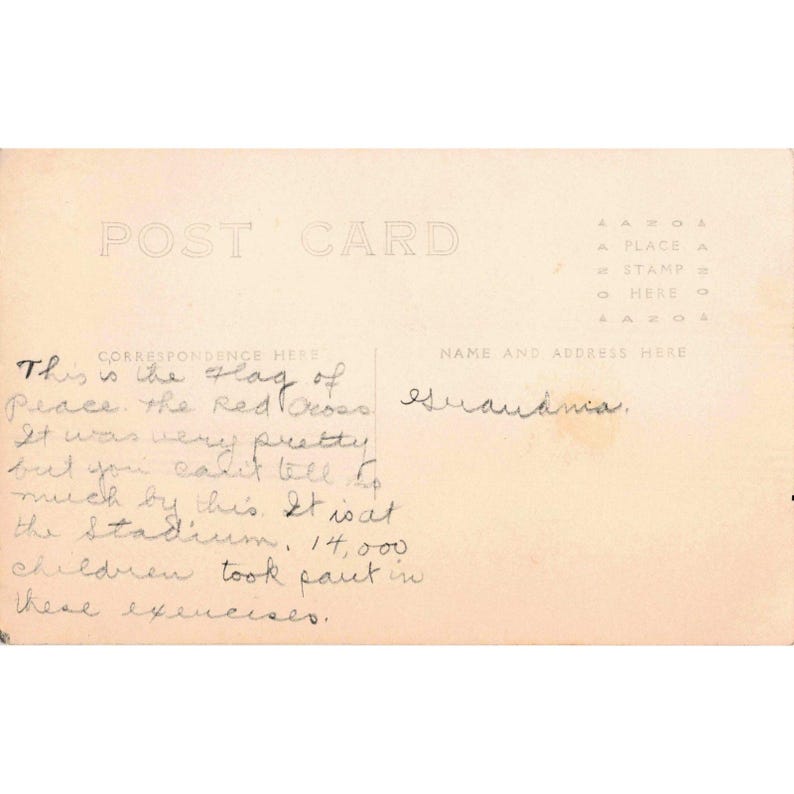 POST CARD
AZO
PLACE
STAMP
HERE
AZO
CORRESPONDENCE HERE
NAME AND ADDRESS HERE
This is the Flag of
Peace. The Red Cross
It was very pretty
but you can't tell so
much by this. It is at
the Stadium. 14,000
children took part in
these exercises.
Grandma.